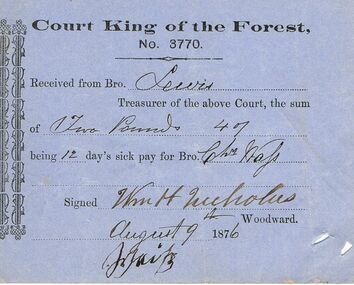 Court King of the Forest,
No. 3770.
Received from Bro. Lewis
Treasurer of the above Court, the sum
of Two Pounds
being 12 day's sick pay for Bro. Chs
Signed Wm H Nicholus
Woodward.
August 9th 1876